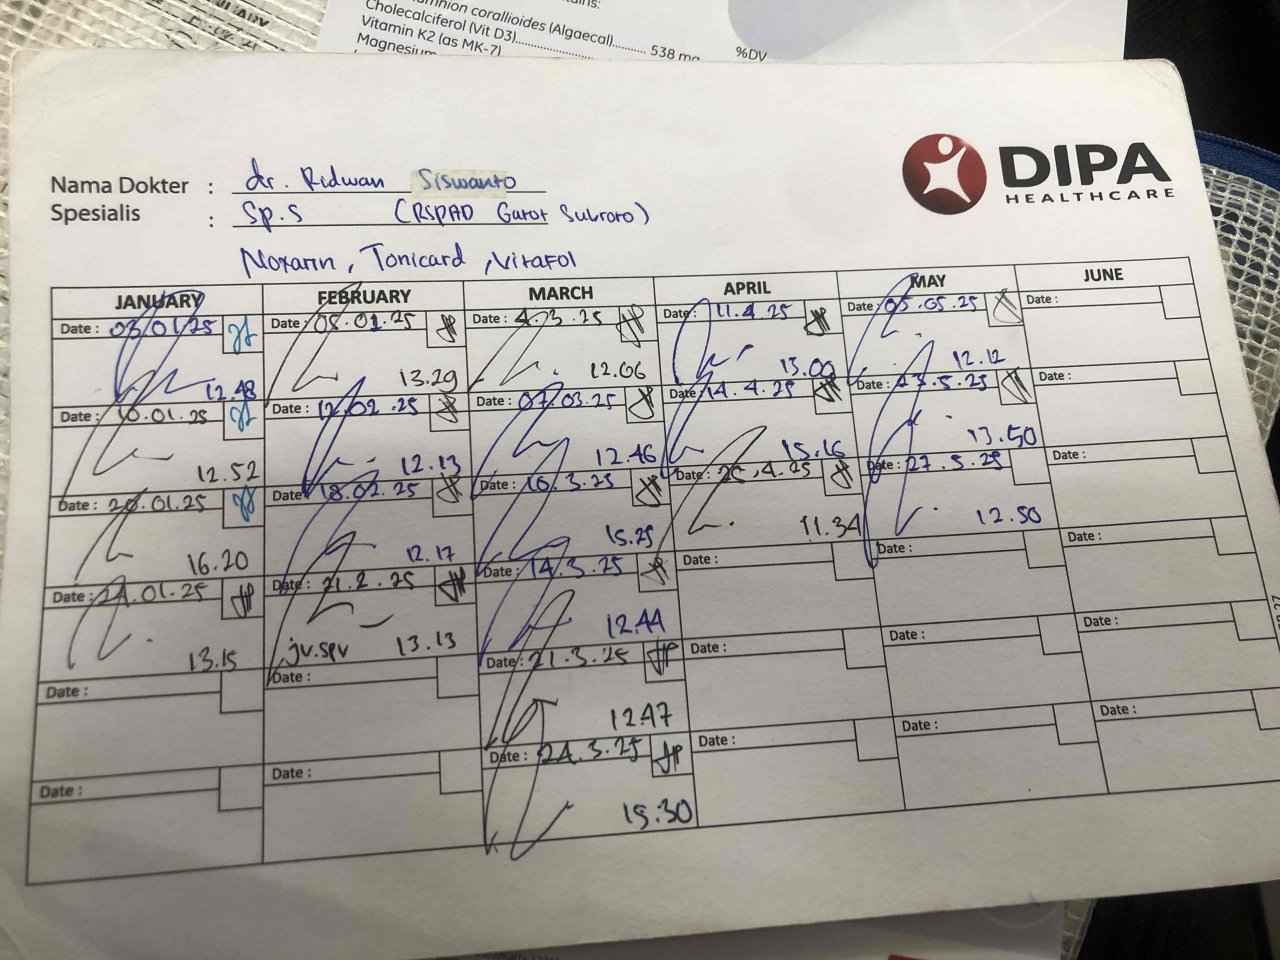 corallioides (Algaecal)......... 538 mg
%DV
Cholecalciferol (Vit D3)
Vitamin K2 (as MK-7)
Magnesium
DIPA
HEALTHCARE
Nama Dokter : dr. Ridwan Siswanto
Spesialis : Sp.S (RSPAD Gatot Subroto)
Noxarin, Tonicard, Vitafol
JANUARY FEBRUARY MARCH APRIL MAY JUNE
Date : 03.01.25 Date : 05.01.25 Date : 4.3.25 Date : 11.4.25 Date : 05.05.25 Date :
12.48 13.29 12.06 13.09 12.12
Date : 10.01.25 Date : 12.02.25 Date : 07.03.25 Date : 14.4.25 Date : 23.5.25 Date :
12.52 12.13 12.46 15.16 13.50
Date : 20.01.25 Date : 18.02.25 Date : 10.3.25 Date : 25.4.25 Date : 27.5.25 Date :
16.20 12.17 15.25 11.34 12.50
Date : 24.01.25 Date : 21.2.25 Date : 14.3.25 Date : Date : Date :
13.15 jv.spv 13.13 12.44
Date : Date : Date : 21.3.25 Date : Date : Date :
12.47
Date : Date : Date : 24.3.25 Date : Date : Date :
15.30